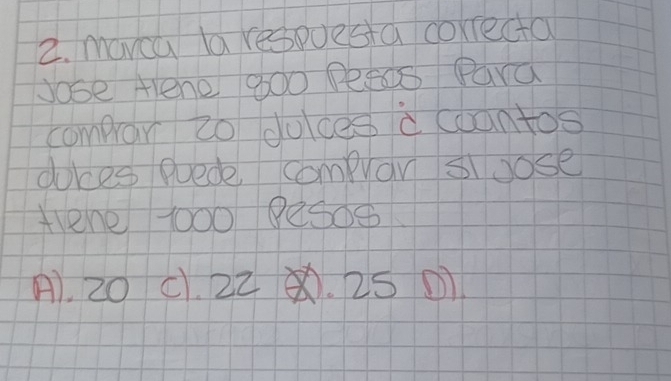 2. marca la respuesta correcta
Jose tiene 800 Pesos Para
comprar 20 dulces ¿ cuantos
dulces puede comprar si jose
tiene 1000 Pesos
A). 20 C). 22 ⊗). 25 D).